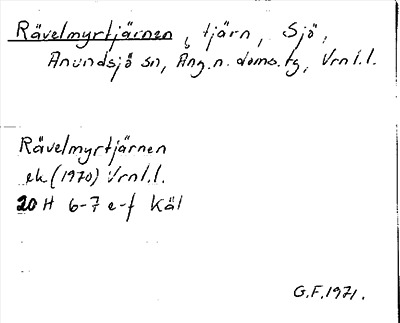 Rävelmyrtjärnen, tjärn, Sjö,
Anundsjö sn, Ång.n. doms.tg, Vrnl.l.
Rävelmyrtjärnen
ek (1970) Vrnl.l.
20 H 6-7 e-f Käl
G.F. 1971.